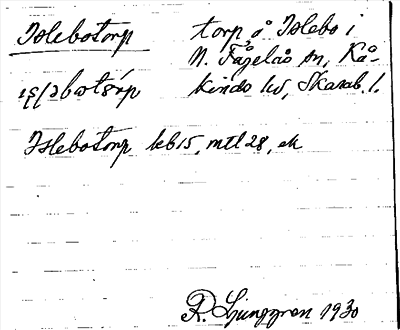 Islebotorp torp å Islebo i
N. Fågelås sn, Kå-
kinds hd, Skarab. l.
Islebotorp kb 15, mtl 28, ek
R. Ljunggren 1930